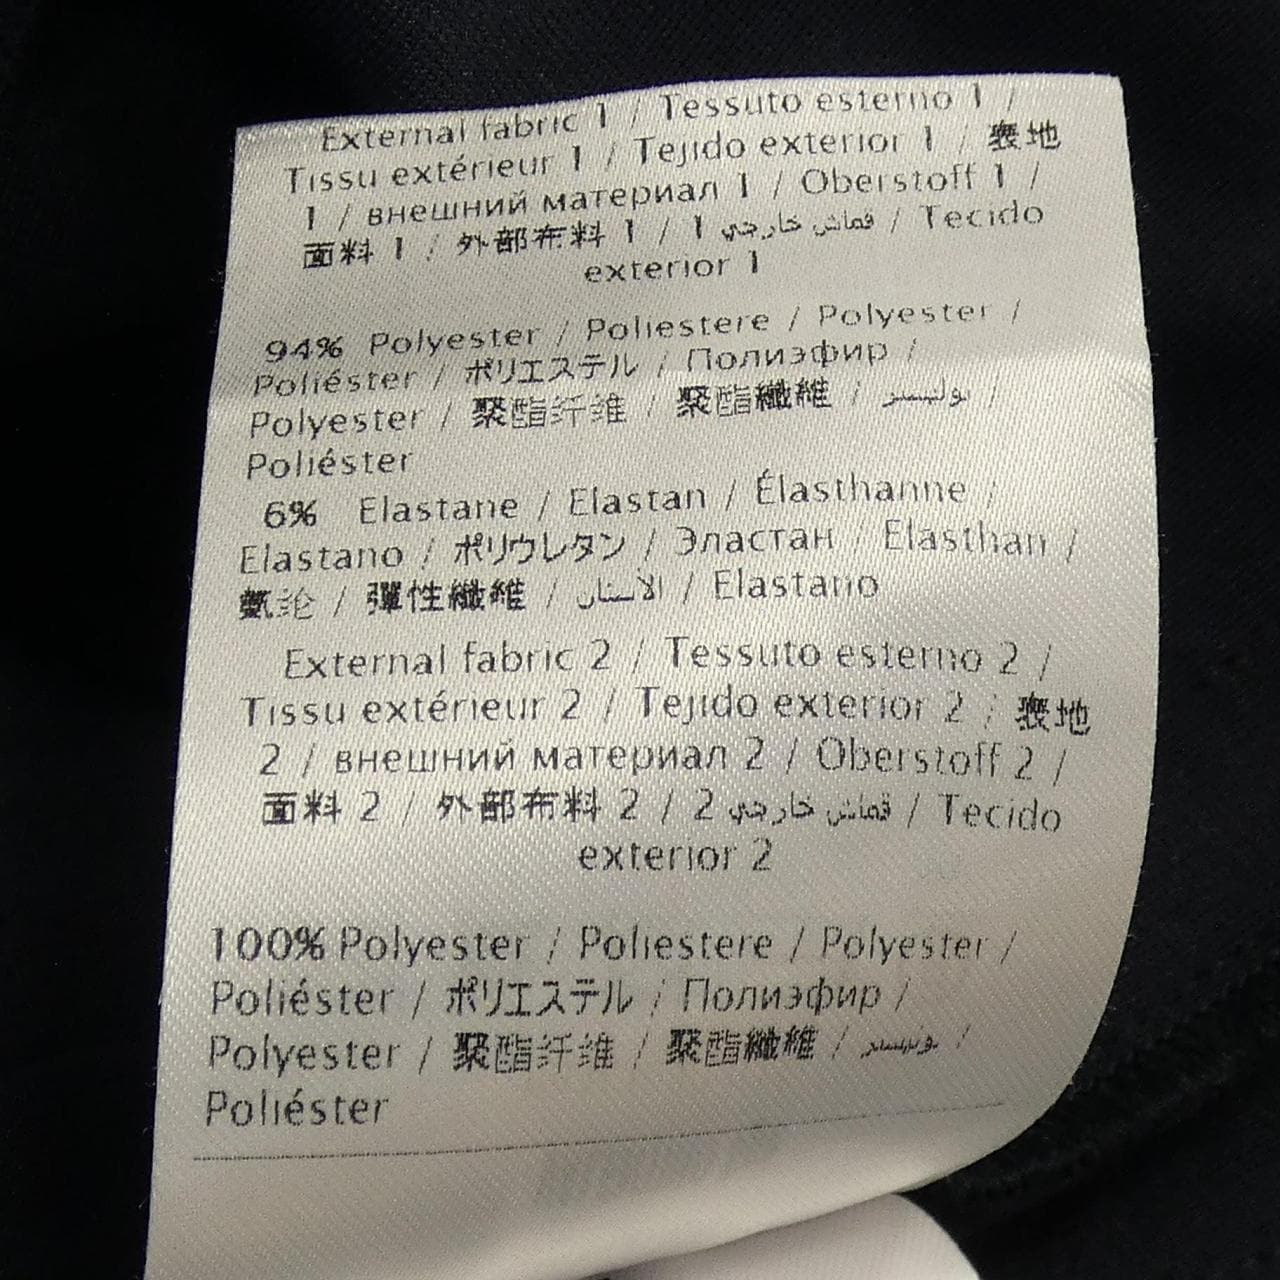 External fabric 1 / Tessuto esterno 1 /
Tissu extérieur 1 / Tejido exterior 1 / 表地
1 / внешний материал 1 / Oberstoff 1 /
面料 1 / 外部布料 1 / 1 قماش خارجي / Tecido
exterior 1
94% Polyester / Poliestere / Polyester /
Poliéster / ポリエステル / Полиэфир /
Polyester / 聚酯纤维 / 聚酯纖維 / بوليستر /
Poliéster
6% Elastane / Elastan / Élasthanne /
Elastano / ポリウレタン / Эластан / Elasthan /
氨纶 / 彈性纖維 / الأستان / Elastano
External fabric 2 / Tessuto esterno 2 /
Tissu extérieur 2 / Tejido exterior 2 / 表地
2 / внешний материал 2 / Oberstoff 2 /
面料 2 / 外部布料 2 / 2 قماش خارجي / Tecido
exterior 2
100% Polyester / Poliestere / Polyester /
Poliéster / ポリエステル / Полиэфир /
Polyester / 聚酯纤维 / 聚酯纖維 / بوليستر /
Poliéster